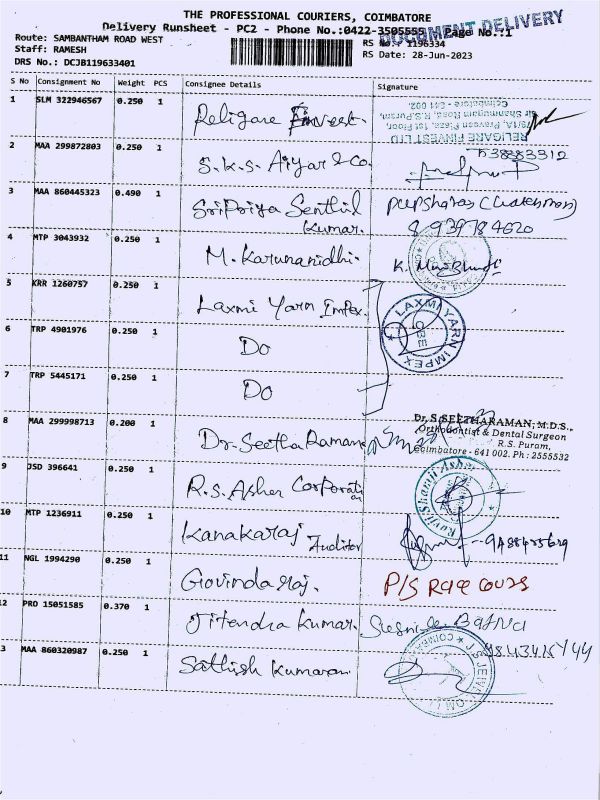 THE PROFESSIONAL COURIERS, COIMBATORE
Delivery Runsheet - PC2 - Phone No.:0422-3505555 Page No.:1
DOCUMENT DELIVERY
Route: SAMBANTHAM ROAD WEST
RS No.: 1196334
Staff: RAMESH
RS Date: 28-Jun-2023
DRS No.: DCJB119633401
S No Consignment No Weight PCS Consignee Details Signature
1 SLM 322946567 0.250 1 Religare Finvest.
RELIGARE FINVEST LTD
79/1A, Praveen Plaza, 1st Floor,
Sir Shanmugam Road, R.S.Puram,
Coimbatore - 641 002.
2 MAA 299872803 0.250 1 S.K.S. Aiyar & Co.
3 MAA 860445323 0.490 1 SriPriya Senthil
Kumar.
8939784620
4 MTP 3043932 0.250 1 M. Karunanidhi.
5 KRR 1260757 0.250 1 Laxmi Yarn Impex.
LAXMI YARN IMPEX
CBE
6 TRP 4901976 0.250 1 Do
7 TRP 5445171 0.250 1 Do
8 MAA 299998713 0.200 1 Dr. Seetha Raman
Dr. S. SEETHARAMAN, M.D.S.,
Orthodontist & Dental Surgeon
R.S. Puram,
Coimbatore - 641 002. Ph : 2555532
9 JSD 396641 0.250 1 R.S. Asher Corporation
10 MTP 1236911 0.250 1 Kanakaraj Auditor
11 NGL 1994290 0.250 1 Govindaraj. P/S Race Course
12 PRO 15051585 0.370 1 Jitendra Kumar.
13 MAA 860320987 0.250 1 Sathish Kumaran